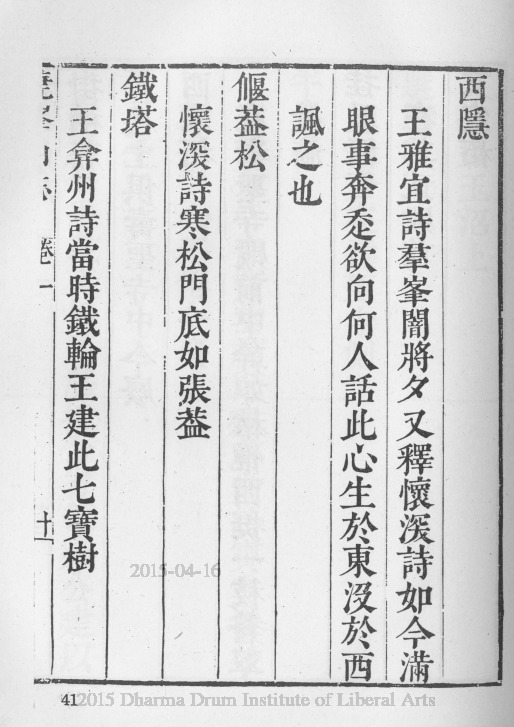 西隱
王雅宜詩羣峯闇將夕又釋懷深詩如今滿
眼事奔忙欲向何人話此心生於東沒於西
諷之也
偃葢松
懷深詩寒松門底如張葢
鐵塔
王弇州詩當時鐵輪王建此七寶樹
卷一
十一
2015-04-16
41
2015 Dharma Drum Institute of Liberal Arts